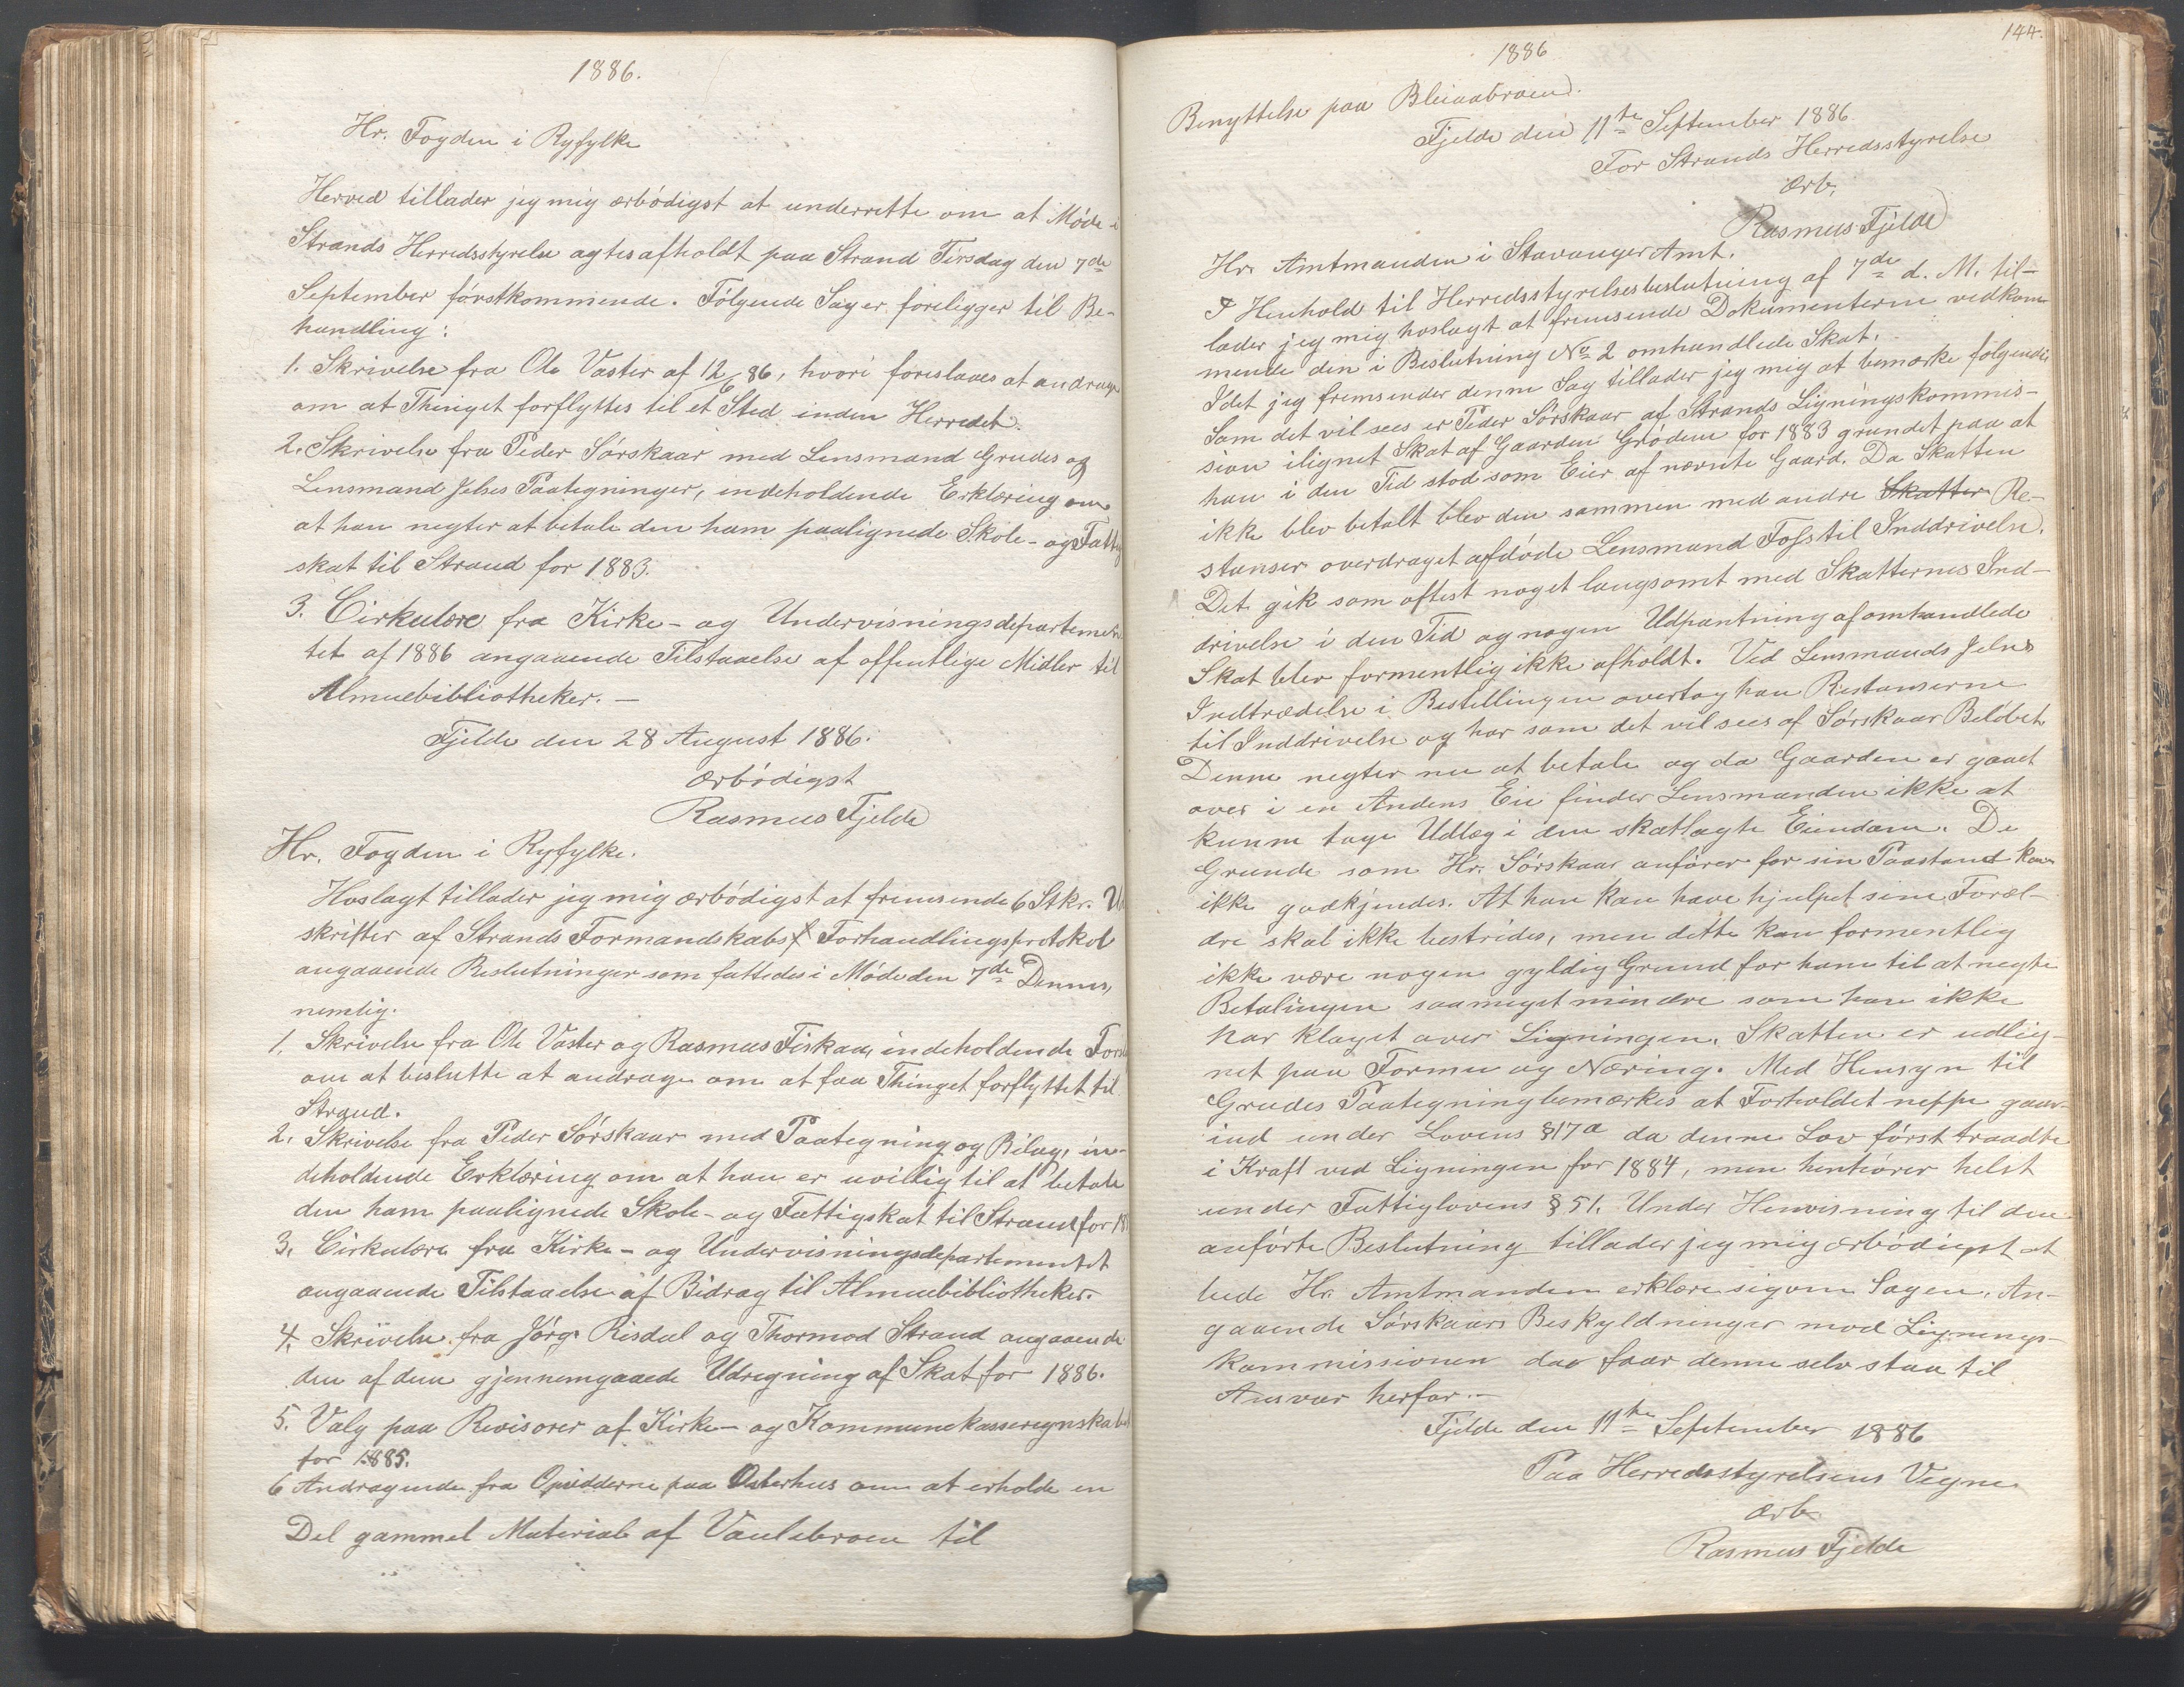 1886.
Hr. Fogden i Ryfylke
Herved tillader jeg mig ærbödigst at underrette om at Möde i
Strands Herredsstyrelse agtes afholdt paa Strand Tirsdag den 7de
September förstkommende. Fölgende Sager foreligger til Be-
handling:
1. Skrivelse fra Ole Vaster af 12/6 86, hvori foreslaaes at andrage
om at Thinget forflyttes til et Sted inden Herredet.
2. Skrivelse fra Peder Sörskaar med Lensmand Grudes og
Lensmand Jelses Paategninger, indeholdende Erklæring om
at han negter at betale den ham paalignede Skole- og Fattig
skat til Strand for 1883.
3. Cirkulære fra Kirke- og Undervisningsdepartemen
tet af 1886 angaaende Tilstaaelse af offentlige Midler til
Almuebibliotheker. —
Fjelde den 28 August 1886.
Ærbödigst
Rasmus Fjelde
Hr. Fogden i Ryfylke.
Hoslagt tillader jeg mig ærbödigst at fremsende 6 Stkr. Ud
skrifter af Strands Formandskabs Forhandlingsprotokol
angaaende Beslutninger som fattedes i Möde den 7de Dennes,
nemlig.
1. Skrivelse fra Ole Vaster og Rasmus Fiskaa, indeholdende Forsl
om at beslutte at andrage om at faa Thinget forflyttet til
Strand.
2. Skrivelse fra Peder Sörskaar med Paategning og Bilag, in-
deholdende Erklæring om at han er uvillig til at betale
den ham paalignede Skole- og Fattigskat til Strand for 18
3. Cirkulære fra Kirke- og Undervisningsdepartementet
angaaende Tilstaaelse af Bidrag til Almuebibliotheker.
4. Skrivelse fra Jörg. Risdal og Thormod Strand angaaende
den af dem gjennemgaaede Udregning af Skat for 1886.
5. Valg paa Revisorer af Kirke- og Kommunekasseregnskabet
for 1885.
6 Andragende fra Opsidderne paa Osterhus om at erholde en
Del gammel Materiale af Vaulebroen til
144.
1886
Benyttelse paa Bleiaabroen.
Fjelde den 11te September 1886.
For Strands Herredsstyrelse
Ærb.
Rasmus Fjelde
Hr. Amtmanden i Stavanger Amt.
I Henhold til Herredsstyrelsesbeslutning af 7de d. M. til-
lader jeg mig hoslagt at fremsende Dokumenterne vedkom
mende den i Beslutning No 2 omhandlede Skat.
Idet jeg fremsender denne Sag tillader jeg mig at bemærke fölgende,
Som det vil sees er Peder Sörskaar af Strands Ligningskommis-
sion ilignet Skat af Gaarden Gröden for 1883 grundet paa at
han i den Tid stod som Eier af nævnte Gaard. Da Skatten
ikke blev betalt blev den sammen med andre Skatter Re-
stanser overdraget afdöde Lensmand Foss til Inddrivelse.
Det gik som oftest noget langsomt med Skatternes Ind-
drivelse i den Tid og nogen Udpantning af omhandlede
Skat blev formentlig ikke afholdt. Ved Lensmands Jelses
Indtrædelse i Bestillingen overtog han Restanserne
til Inddrivelse og har som det vil sees af Sörskaar Belöbet
Denne negter nu at betale og da Gaarden er gaaet
over i en Andens Eie finder Lensmanden ikke at
kunne tage Udlæg i den skatlagte Eiendom. De
Grunde som Hr. Sörskaar anförer for sin Paastand kan
ikke godkjendes. At han kan have hjulpet sine Foræl-
dre skal ikke bestrides, men dette kan formentlig
ikke være nogen gyldig Grund for ham til at negte
Betalingen saameget mindre som han ikke
har klaget over Ligningen. Skatten er udlig-
net paa Formue og Næring. Med Hensyn til
Grudes Paategning bemærkes at Forholdet neppe gaar
ind under Lovens §17a da denne Lov först traadte
i Kraft ved Ligningen for 1884, men henhörer helst
under Fattiglovens § 51. Under Henvisning til den
anförte Beslutning tillader jeg mig ærbödigst at
bede Hr. Amtmanden erklære sig om Sagen. An-
gaaende Sörskaars Beskyldninger mod Lignings-
kommissionen da faar denne selv staa til
Ansvar herfor.—
Fjelde den 11te September 1886
Paa Herredsstyrelsens Vegne
Ærb.
Rasmus Fjelde